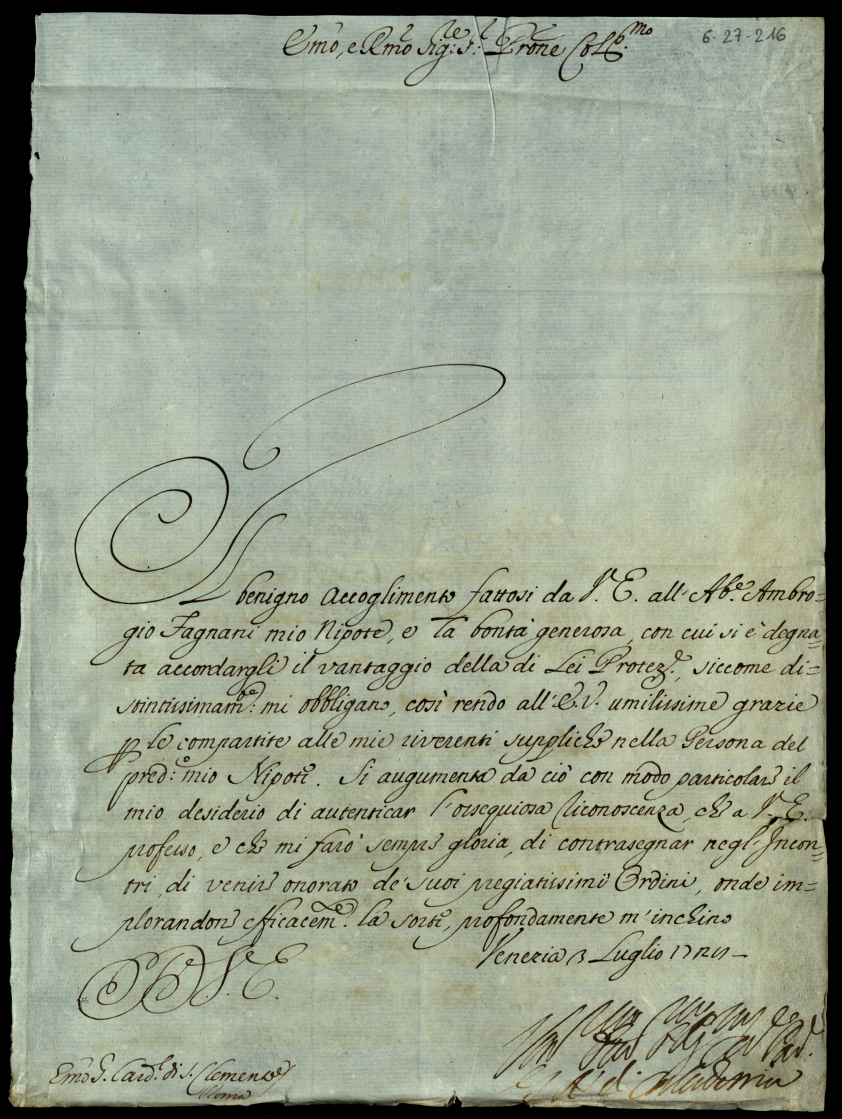 Emo, e Rmo Sig.re S.r Prone Coll.mo
6-27-216
Il benigno accoglimento fattosi da V. E. all' Ab.e Ambro=
gio Fagnani mio Nipote, e la bontà generosa, con cui si è degna=
ta accordargli il vantaggio della di Lei Protez.e, siccome di=
stintissimam.e mi obbligano, così rendo all' E. V. umilissime grazie
p le compartite alle mie riverenti suppliche nella Persona del
pred.o mio Nipote. Si augumenta da ciò con modo particolare il
mio desiderio di autenticar l'ossequiosa riconoscenza, che a V. E.
professo, e che mi farò sempre gloria, di contrasegnar negl' Incon=
tri, di venire onorato de' suoi pregiatissimi Ordini, onde im=
plorandone efficacem.e la sorte, profondamente m' inchino
Venezia 3 Luglio
V. E.
Emo S. Card.l di S. Clemente
Roma